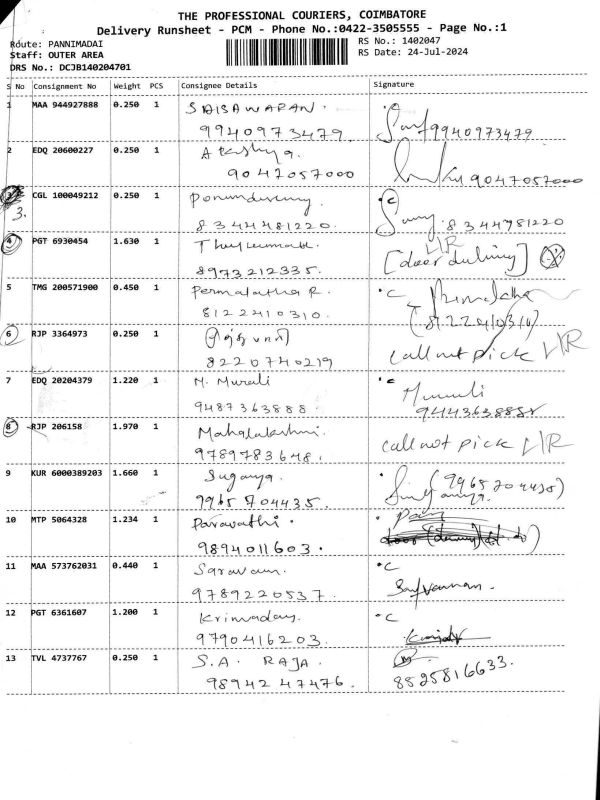 THE PROFESSIONAL COURIERS, COIMBATORE
Delivery Runsheet - PCM - Phone No.:0422-3505555 - Page No.:1
Route: PANNIMADAI
RS No.: 1402047
Staff: OUTER AREA
RS Date: 24-Jul-2024
DRS No.: DCJB140204701
S No Consignment No Weight PCS Consignee Details Signature
1 MAA 944927888 0.250 1
9940973479 9940973479
2 EDQ 20600227 0.250 1 Akshya
9047057000 9047057000
3 CGL 100049212 0.250 1
3. 8344481220 8344981220
4 PGT 6930454 1.630 1
8973212335.
5 TMG 200571900 0.450 1 Permalatha R.
8122410310. (8122410310)
6 RJP 3364973 0.250 1
8220740219 call not pick
7 EDQ 20204379 1.220 1 M. Murali Murali
9487363888.
8 RJP 206158 1.970 1 Mahalakshmi
9789783648. call not pick
9 KUR 6000389203 1.660 1 Suganya.
9965704435.
10 MTP 5064328 1.234 1 Paravathi.
9894011603.
11 MAA 573762031 0.440 1
9789220537.
12 PGT 6361607 1.200 1
9790416203.
13 TVL 4737767 0.250 1 S.A. RAJA.
9894247476. 8825816633.